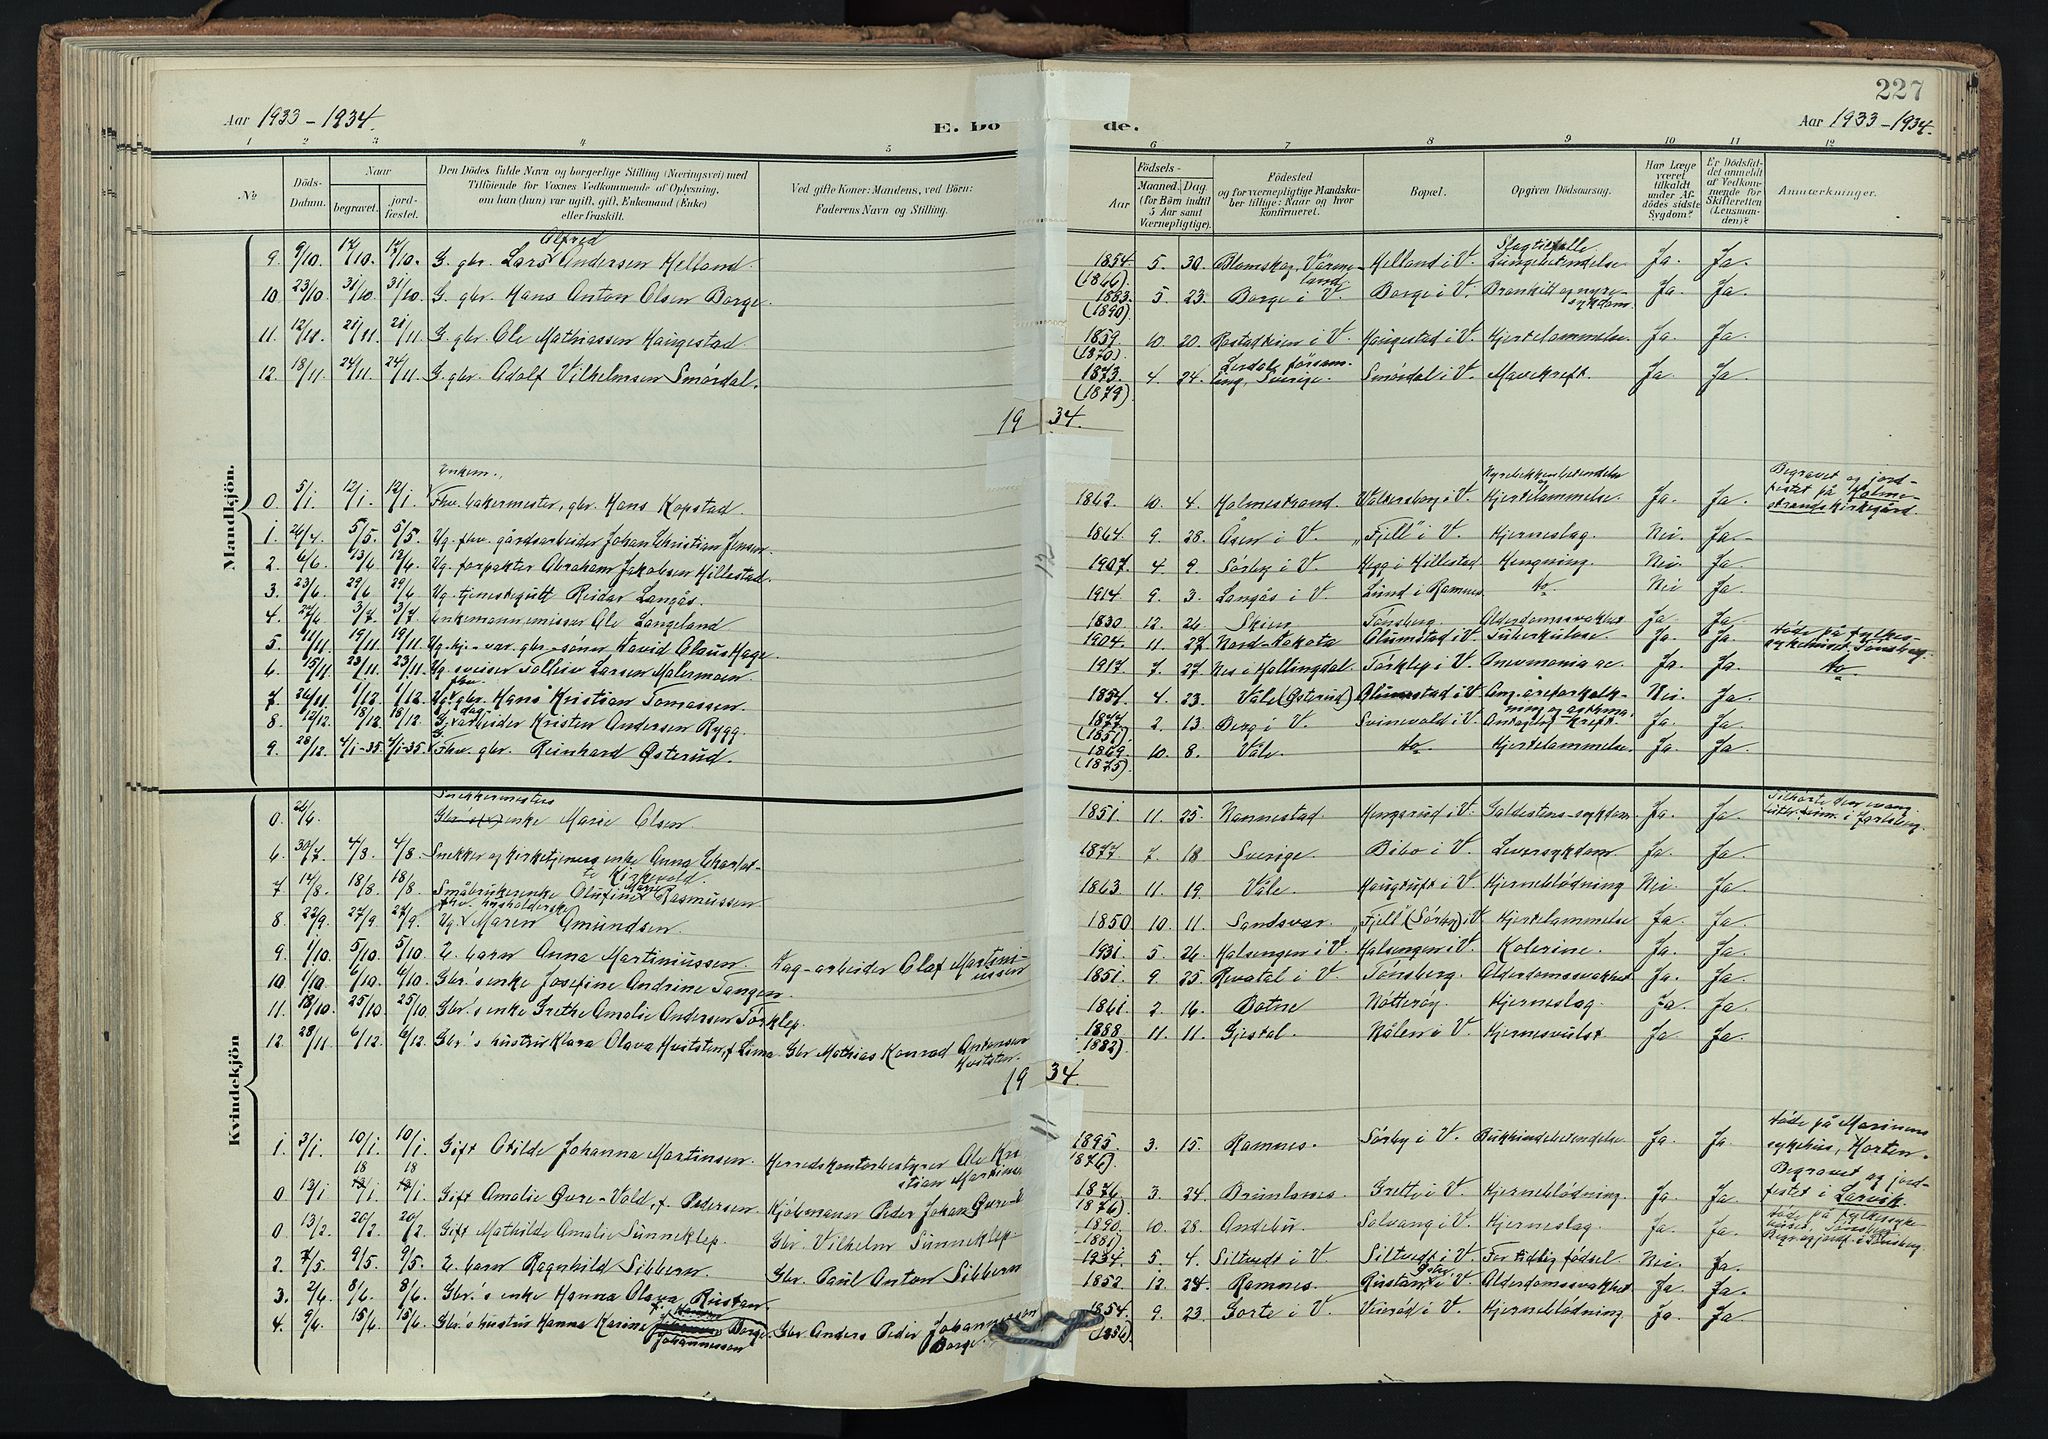 227
Aar 1933-1934.
E. Dö
de.
Aar 1933-1934.
1 2 3 4 5 6 7 8 9 10 11 12
No
Döds-Datum.
Naar
begravet.
jord-fæstet.
Den Dödes fulde Navn og borgerlige Stilling (Næringsvei) med
Tilföiende for Voxnes Vedkommende af Oplysning,
om han (hun) var ugift, gift, Enkemand (Enke)
eller fraskilt.
Ved gifte Koner: Mandens, ved Börn:
Faderens Navn og Stilling.
Födsels-
Aar
Maaned. Dag.
(for Börn indtil 5 Aar samt Værnepligtige).
Födested
og for værnepligtige Mandskaber tillige: Naar og hvor konfirmeret.
Bopæl.
Opgiven Dödsaarsag.
Har Læge været tilkaldt under Afdödes sidste Sygdom?
Er Dödsfaldet anmeldt af Vedkommende for Skifteretten (Lensmanden)?
Anmærkninger.
Mandkjön.
9. 9/10. 17/10. 17/10. G. gbr. Lars Alfred Andersen Helland. 1854. (1866). 5. 30. Blomskog, Värmeland. Helland i V. Slagtilfelle Lungebetendelse Ja. Ja.
10. 23/10. 31/10 31/10 G. gbr. Hans Anton Olsen Borge. 1883. (1890). 5. 23. Borge i V. Borge i V. Bronkitt og nyresykdom. Ja. Ja.
11. 12/11. 21/11. 21/11. G. gbr. Ole Mathiassen Haugestad. 1859. (1870). 10. 20. i V. Haugestad i V. Hjertelammelse. Ja. Ja.
12. 18/11. 24/11. 24/11. G. gbr. Adolf Vilhelmsen Smørdal. 1873. (1879). 4. 24. försam-ling, Sverige. Smørdal i V. Mavekreft. Ja Ja.
1934.
0. 5/1. 12/1. 12/1. Enkem. Fhv. bakermester, gbr. Hans Kopstad. 1862. 10. 4. Holmestrand. i V. Nyrebekkenbetendelse og Hjertelammelse. Ja. Ja. Begravet og jord-festet på Holme-strands kirkegård.
1. 26/4. 5/5. 5/5. Ug. fhv. gårdsarbeider Johan Christian Jensen. 1864. 9. 28. Åsen i V. "Fjell" i V. Hjerneslag. Nei. Ja.
2. 6/6. 13/6 13/6. Ug. forpakter Abraham Jakobsen Hillestad. 1907. 4. 9. Sørby i V. Hegg i Hillestad Hengning. Nei. Ja.
3. 23/6. 29/6 29/6. Ug. tjenestegutt Reidar Langås. 1914. 9. 3. Langås i V. Lund i Ramnes. do Nei Ja.
4. 27/6 3/7. 3/7. Enkemann emissær Ole Langeland 1830. 12. 26. Skien. Tønsberg. Alderdomssvakhet Ja. Ja.
5. 11/11 19/11. 19/11. Ug. hj.-var. gbr.-sønn David Olaus Hage. 1904. 11. 27. Nord-Dakota Olumstad i V. Tuberkulose. Ja. Ja. døde på fylkes-sykehuset, Tønsberg.
6. 15/11 23/11 23/11. Ug. sveiser Tolleiv Larsen Molermoen. 1917. 7. 27. Nes i Hallingdal. Tørklep i V. Pneumonia ac. Ja. Ja. do
7. 26/11. 1/12. 1/12. Ug. fhv. gbr. Hans Kristian Tomassen. 1854. 4. 23. Våle (Østerud) Olumstad i V. Ang. åreforkalkning og asthma. Nei. Ja.
8. 12/12. 18/12 18/12. G. dagarbeider Kristen Andersen Bygg. 1877. 2. 13. Berg i V. Svinevald i V. kreft. Ja. Ja.
9. 28/12. 4/1-35. 4/1-35. G. Fhv. gbr. Reinhard Østerud. 1869. (1875). 10. 8. Våle. do. Hjertelammelse. Ja. Ja.
Kvindekjön
0. 26/6. Snekkermesters Gbr.s enke Marie Olsen. 1851. 11. 25. Nannestad. Hengsrud i V. Galdestens-sykdom. Ja. Ja. Tilhørte den evang. luth. i Jarlsberg.
6. 30/7. 4/8. 4/8. Snekker og kirketjeners enke Anna Charlotte Kirkevold. 1877. 7. 18. Sverige. Bibo i V. Leversykdom. Ja. Ja.
7 14/8. 18/8. 18/8. Småbrukerenke Olufine Marie Rasmussen. 1863. 11. 19. Våle. Haugtuft i V. Hjerneblødning Nei. Ja.
8. 22/9. 27/9. 27/9. Ug. fhv. husholderske Maren Amundsen. 1850 10. 11. Sandsvær. "Fjell" (Sørby) i V. Hjertelammelse Ja. Ja.
9. 1/10. 5/10. 5/10. E. barn Anna Martiniussen. Dag-arbeider Olaf Martiniussen 1931. 5. 26. Holsengen i V. Holsengen i V. Kolerine. Ja. Ja.
10. 1/10. 6/10. 6/10. Gbr.'s enke Josefine Andrine Tangen. 1851. 9. 25. Revatal i V. Tønsberg. Alderdomssvakhet Ja. Ja.
11. 18/10. 25/10 25/10 Gbr.'s enke Grethe Amalie Andersen Tørklep. 1861. 2. 16. Botne Nøtterøy. Hjerneslag. Ja. Ja.
12. 28/11. 6/12. 6/12. Gbr.'s hustru Klara Olava Hvitsten, f. Lima Gbr. Mathias Konrad Antonsen Hvitsten. 1888 (1882). 11. 11. Gjestal. Nålen i V. Hjernesvulst Ja Ja.
1934.
1. 3/1. 10/1. 10/1. Gift Otilde Johanna Martinsen. Herredskontorbestyrer Ole Kristian Martinsen 1895. 3. 15. Ramnes. Sørby i V. Bukhindebetendelse Ja Ja Døde på Marinens sykehus, Horten.
0. 13/1 18/1. 18/1. Gift Amalie Øvre-Vold, f. Pedersen. Kjøbmann Peder Johan Øvre-V 1876. (1876). 3. 24. Brunlanes. Gretti i V. Hjerneblødning. Ja. Ja. Begravet og jord-festet i Larvik.
0. 13/2. 20/2. 20/2. Gift Mathilde Amalie Sunneklep. Gbr. Vilhelm Sunneklep. 1890. (1881). 10. 28. Andebu. Solvang i V. Hjerneslag. Ja. Ja. Døde på fylkessykehuset, Tønsberg
2. 7/5. 9/5. 9/5. E. barn Ragnhild Sibbern. Gbr. Paul Anton Sibbern 1934. 5. 4. Siltvedt i V. Siltvedt i V. For tidlig fødsel. Nei. Ja.
3. 2/6. 8/6. 8/6. Gbr.'s enke Hanna Olava Rustan. 1852. 12. 24. Ramnes. Rustan i V. Alderdomssvakhet Ja. Ja.
4. 9/6. 15/6. 15/6. Gbr.'s hustru Hanna Karine Borge, f. Johannessen Gbr. Anders Peder Johannessen Borge. 1854. (1856). 9. 23. Gorte i V. i V. Hjerneblødning Ja. Ja.
12
11